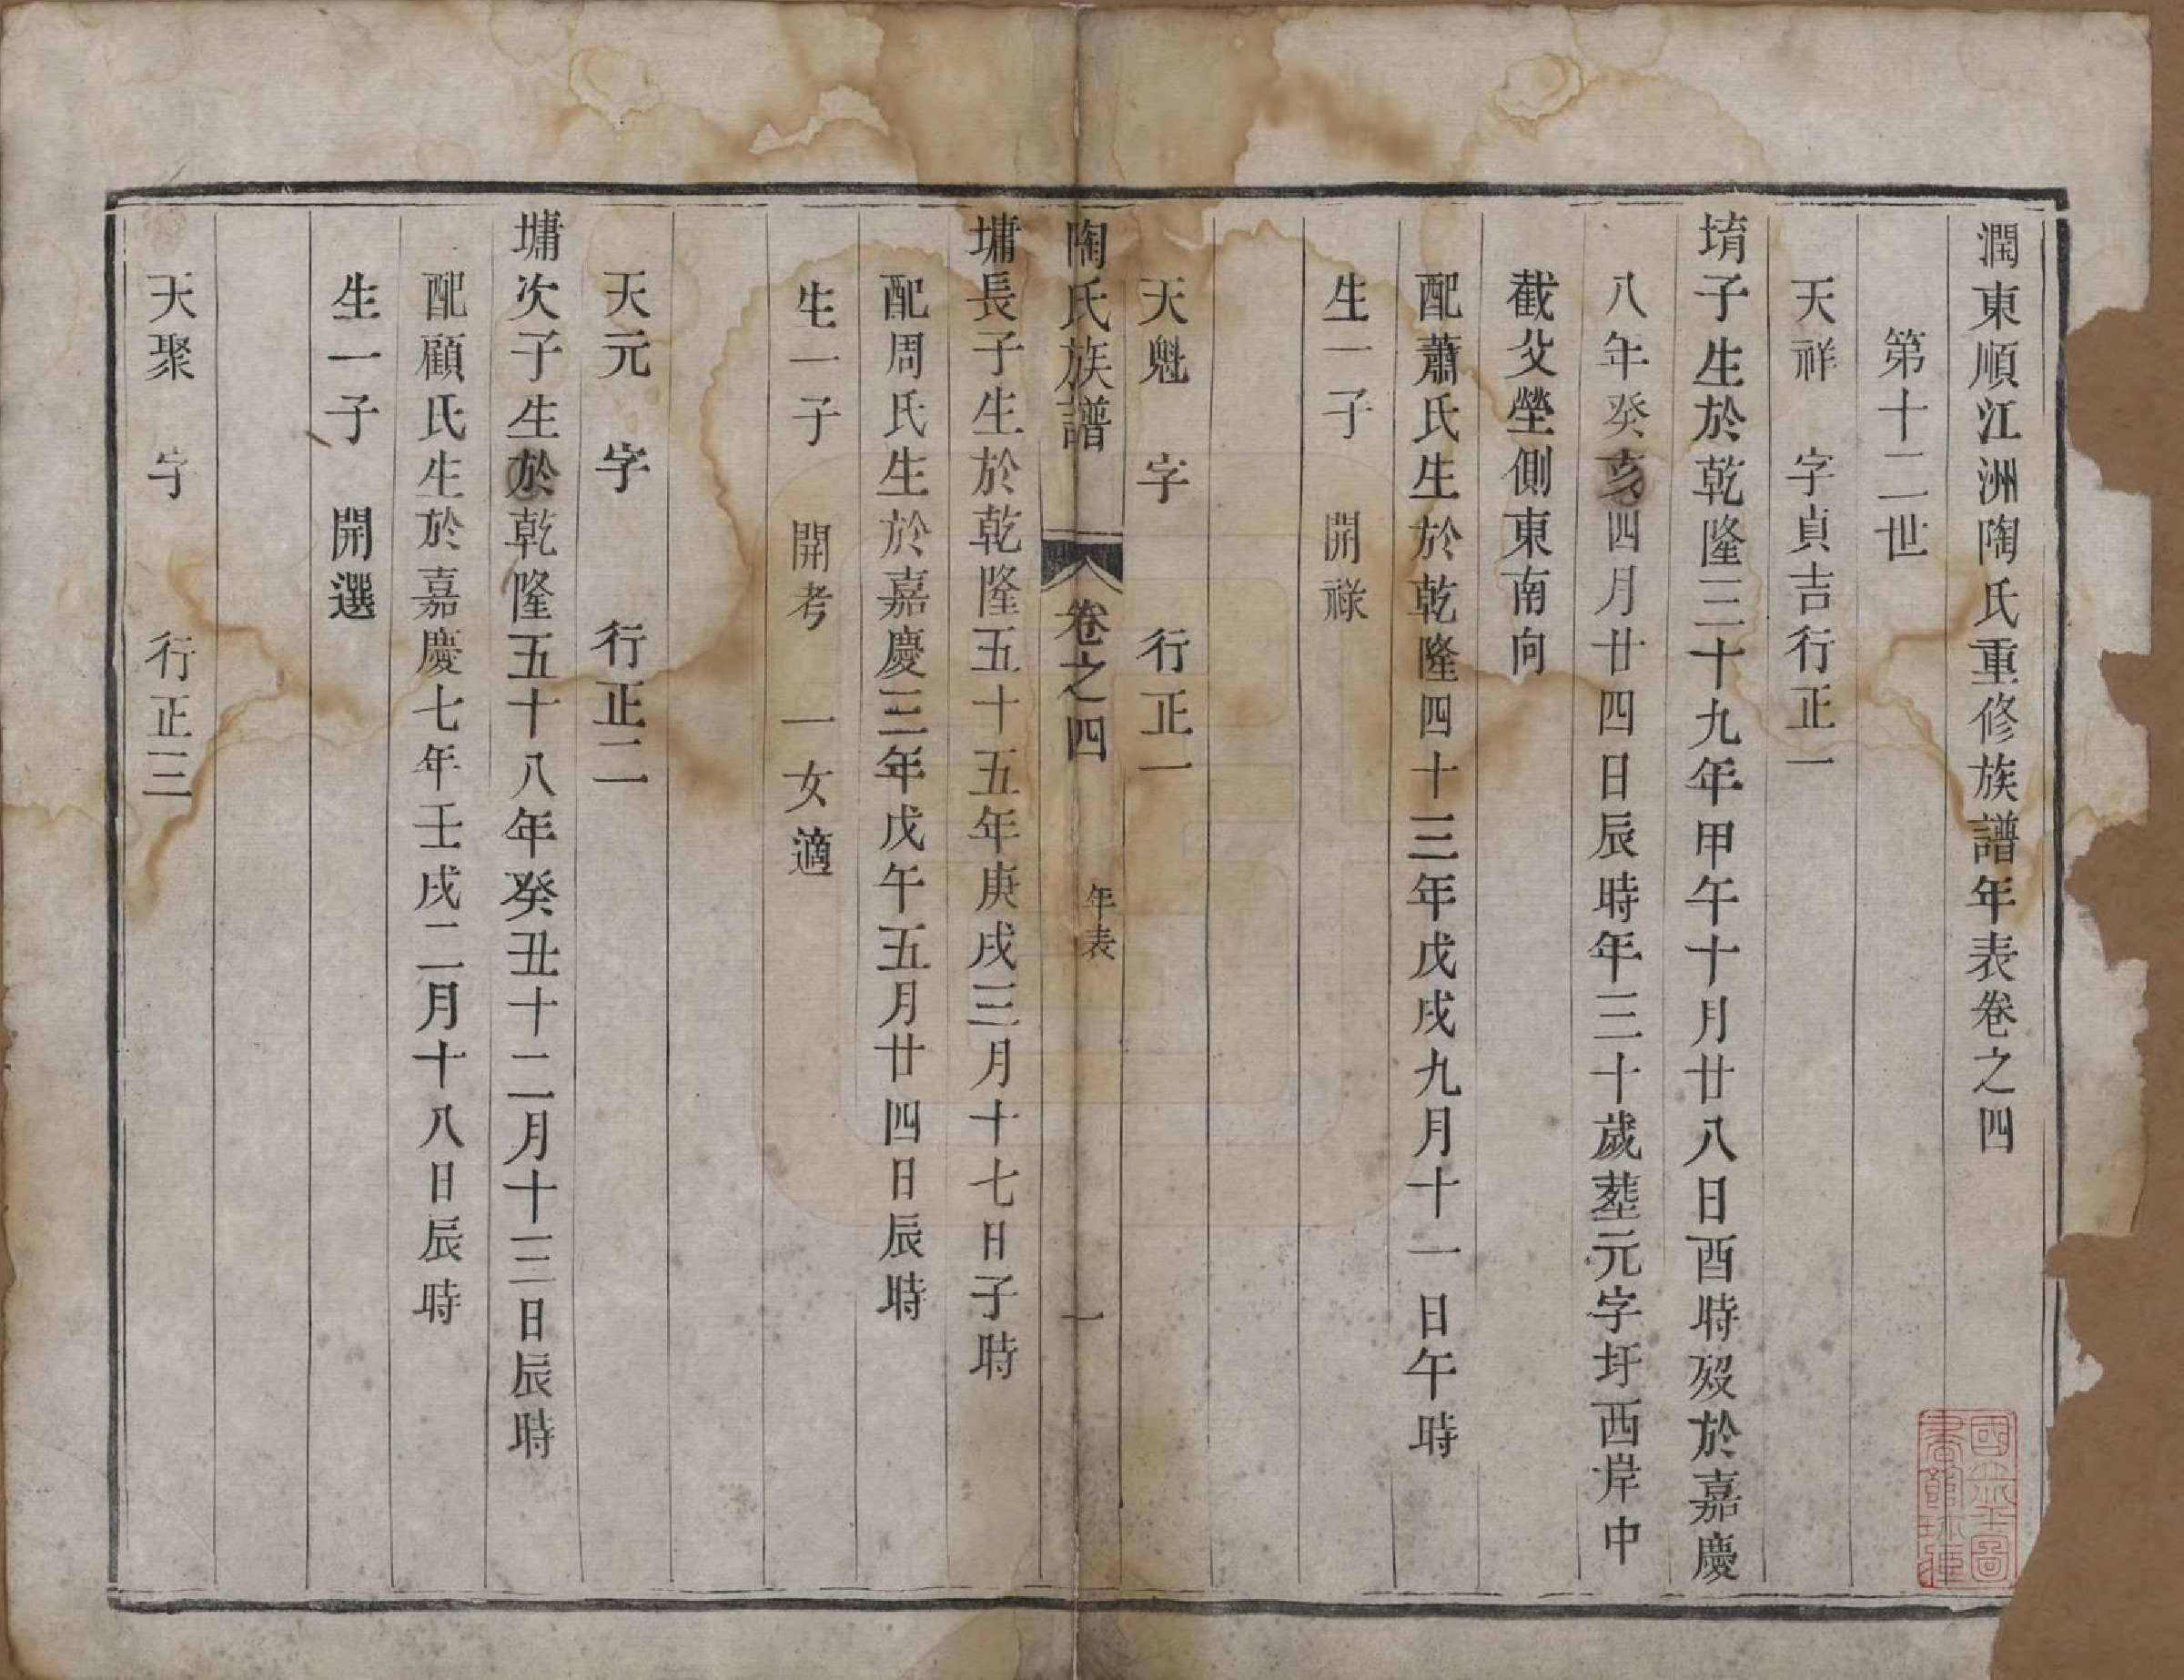 潤東順江洲陶氏重修族譜年表卷之四
第十二世
天祥 字貞吉行正一
堉子生於乾隆三十九年甲午十月廿八日酉時歿於嘉慶
八年癸亥四月廿四日辰時年三十歲塟元字圩西岸中
截父塋側東南向
配蕭氏生於乾隆四十三年戊戌九月十一日午時
生一子 開祿
天魁 字 行正一
陶氏族譜 卷之四 年表 一
墉長子生於乾隆五十五年庚戌三月十七日子時
配周氏生於嘉慶三年戊午五月廿四日辰時
生一子 開考 一女適
天元 字 行正二
墉次子生於乾隆五十八年癸丑十二月十三日辰時
配顧氏生於嘉慶七年壬戌二月十八日辰時
生一子 開選
天聚 字 行正三
國立北平圖
書館珍藏